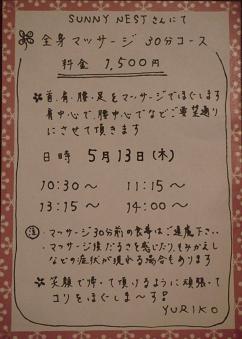 SUNNY NESTさんにて
全身マッサージ 30分コース
料金 1,500円
首、肩、腰、足をマッサージでほぐします
肩中心で、腰中心でなどご要望通り
にさせて頂きます
日時 5月13日(木)
10:30～ 11:15～
13:15～ 14:00～
注 ・マッサージ30分前の食事はご遠慮下さい
・マッサージ後だるさを感じたり、もみかえし
などの症状が現れる場合もあります
笑顔で帰って頂けるように頑張って
コリをほぐしま～す!
YURIKO